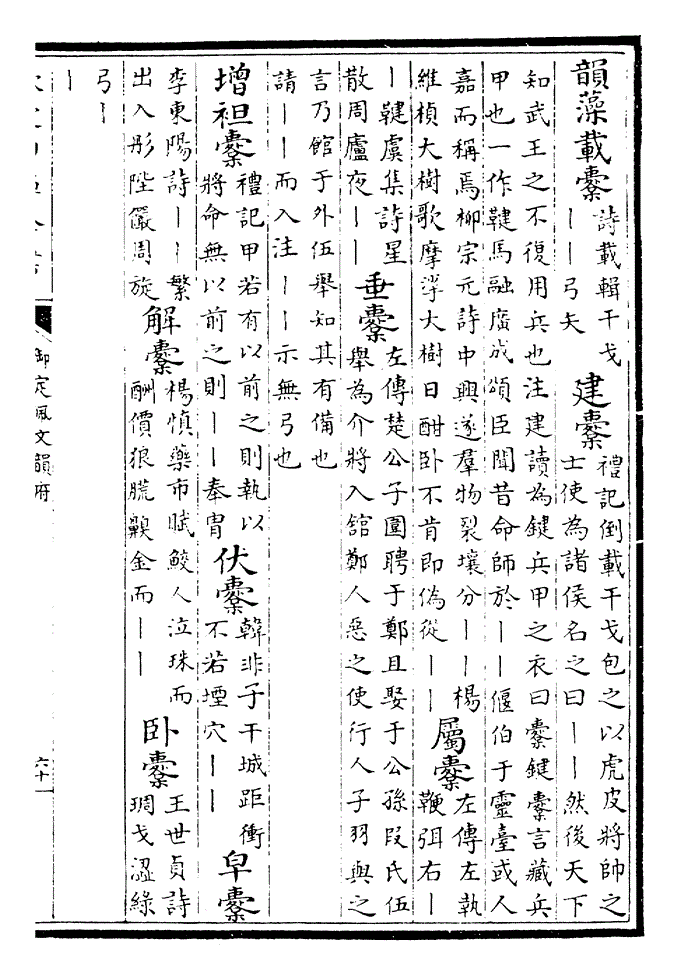 韻藻載櫜
詩載輯干戈
——弓矢
建櫜
禮記倒載干戈包之以虎皮將帥之
士使為諸侯名之曰——然後天下
知武王之不復用兵也注建讀為鍵兵甲之衣曰櫜鍵櫜言藏兵
甲也一作鞬馬融廣成頌臣聞昔命師於——偃伯于靈臺或人
嘉而稱焉柳宗元詩中興遂羣物裂壤分——楊
維楨大樹歌摩浮大樹日酣卧不肯即偽從——
屬櫜
左傳左執
鞭弭右—
—鞬虞集詩星
散周廬夜——
垂櫜
左傳楚公子圍聘于鄭且娶于公孫段氏伍
舉為介將入舘鄭人惡之使行人子羽與之
言乃館于外伍舉知其有備也
請——而入注——示無弓也
增袒櫜
禮記甲若有以前之則執以
將命無以前之則——奉冑
伏櫜
韓非子干城距衝
不若堙穴——
皁櫜
李東陽詩——繁
出入彤陛儼周旋
解櫜
楊慎藥市賦鮫人泣珠而
酬價狼䑃齅金而——
卧櫜
王世貞詩
琱戈澀綠
弓—
—
御定佩文韻府
六十一